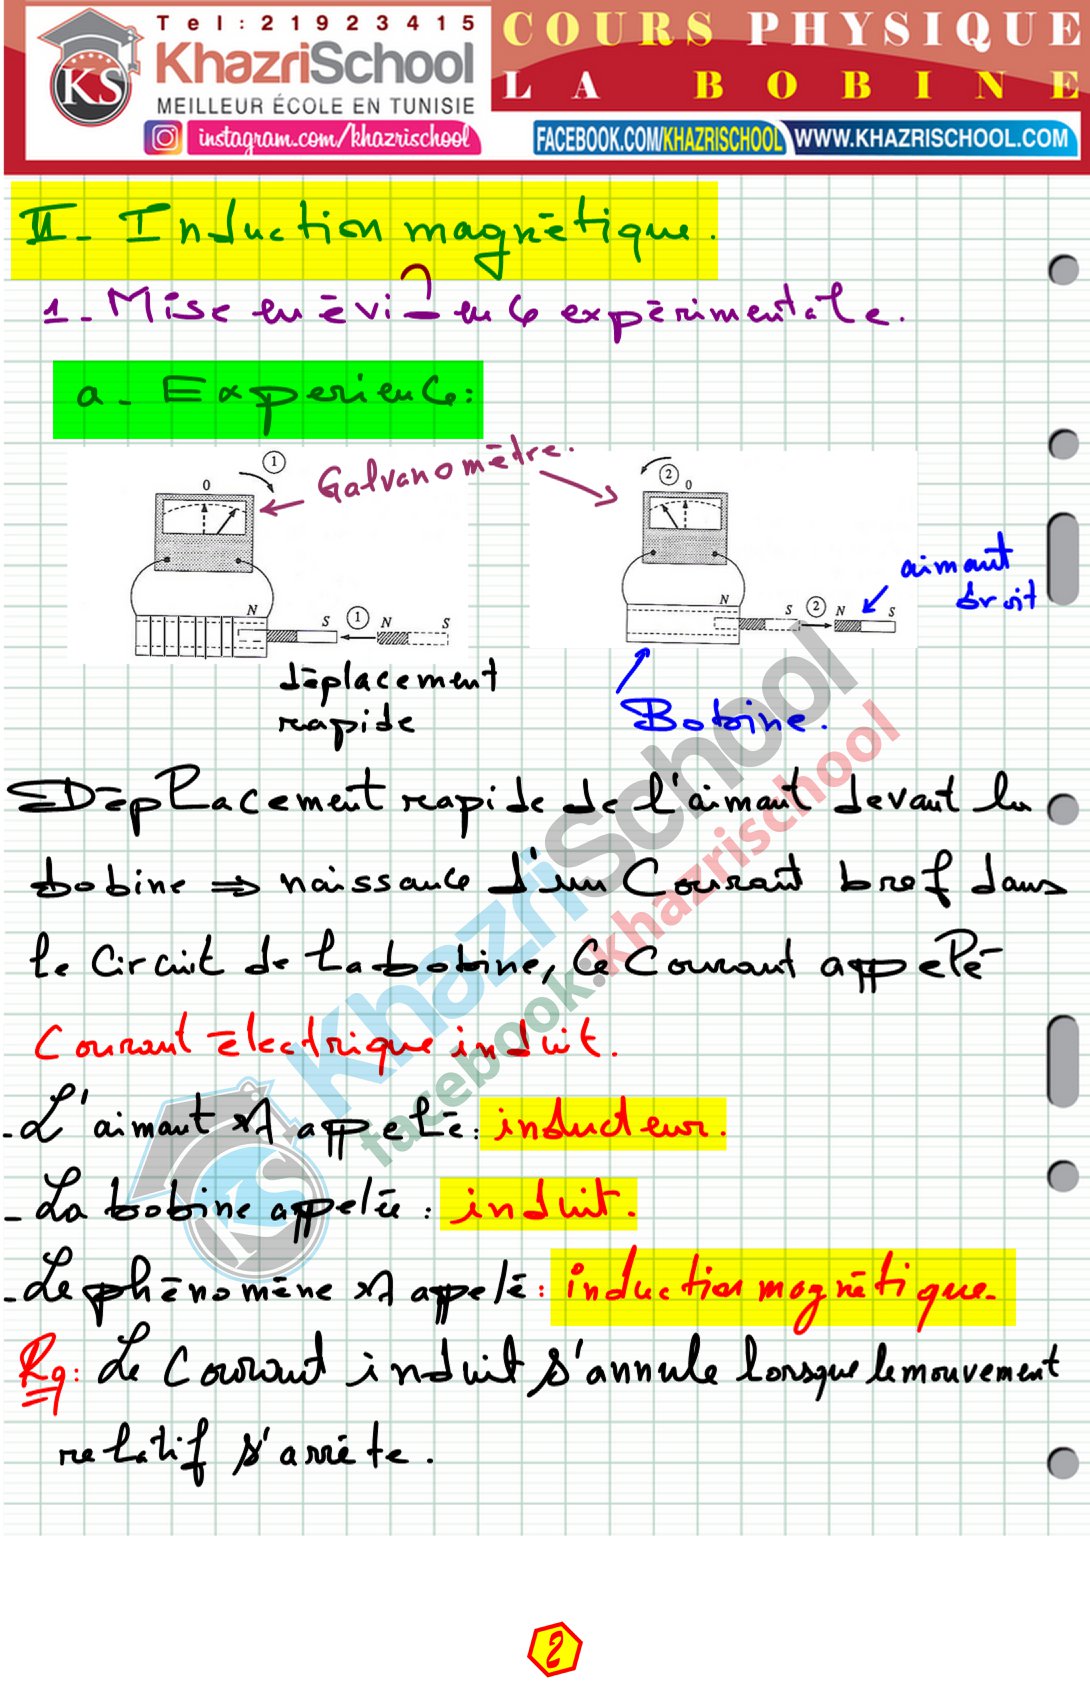 Tel: 21923415
KhazriSchool
MEILLEUR ÉCOLE EN TUNISIE
instagram.com/khazrischool
COURS PHYSIQUE
LA BOBINE
FACEBOOK.COM/KHAZRISCHOOL
WWW.KHAZRISCHOOL.COM
KS
II- Induction magnétique.
1- Mise en évidence expérimentale.
a- Experience:
Galvanomètre.
1
0
N
S
1
N
S
2
0
N
S
2
N
S
aimant
droit
déplacement
rapide
Bobine.
Déplacement rapide de l'aimant devant la
bobine ⇒ naissance d'un Courant bref dans
le circuit de la bobine, ce courant appelé
Courant électrique induit.
- L'aimant est appelé: inducteur.
- La bobine appelée: induit.
- Le phénomène est appelé: induction magnétique.
Rq: Le Courant induit s'annule lorsque le mouvement
relatif s'arrête.
KhazriSchool
facebook:khazrischool
KS
2